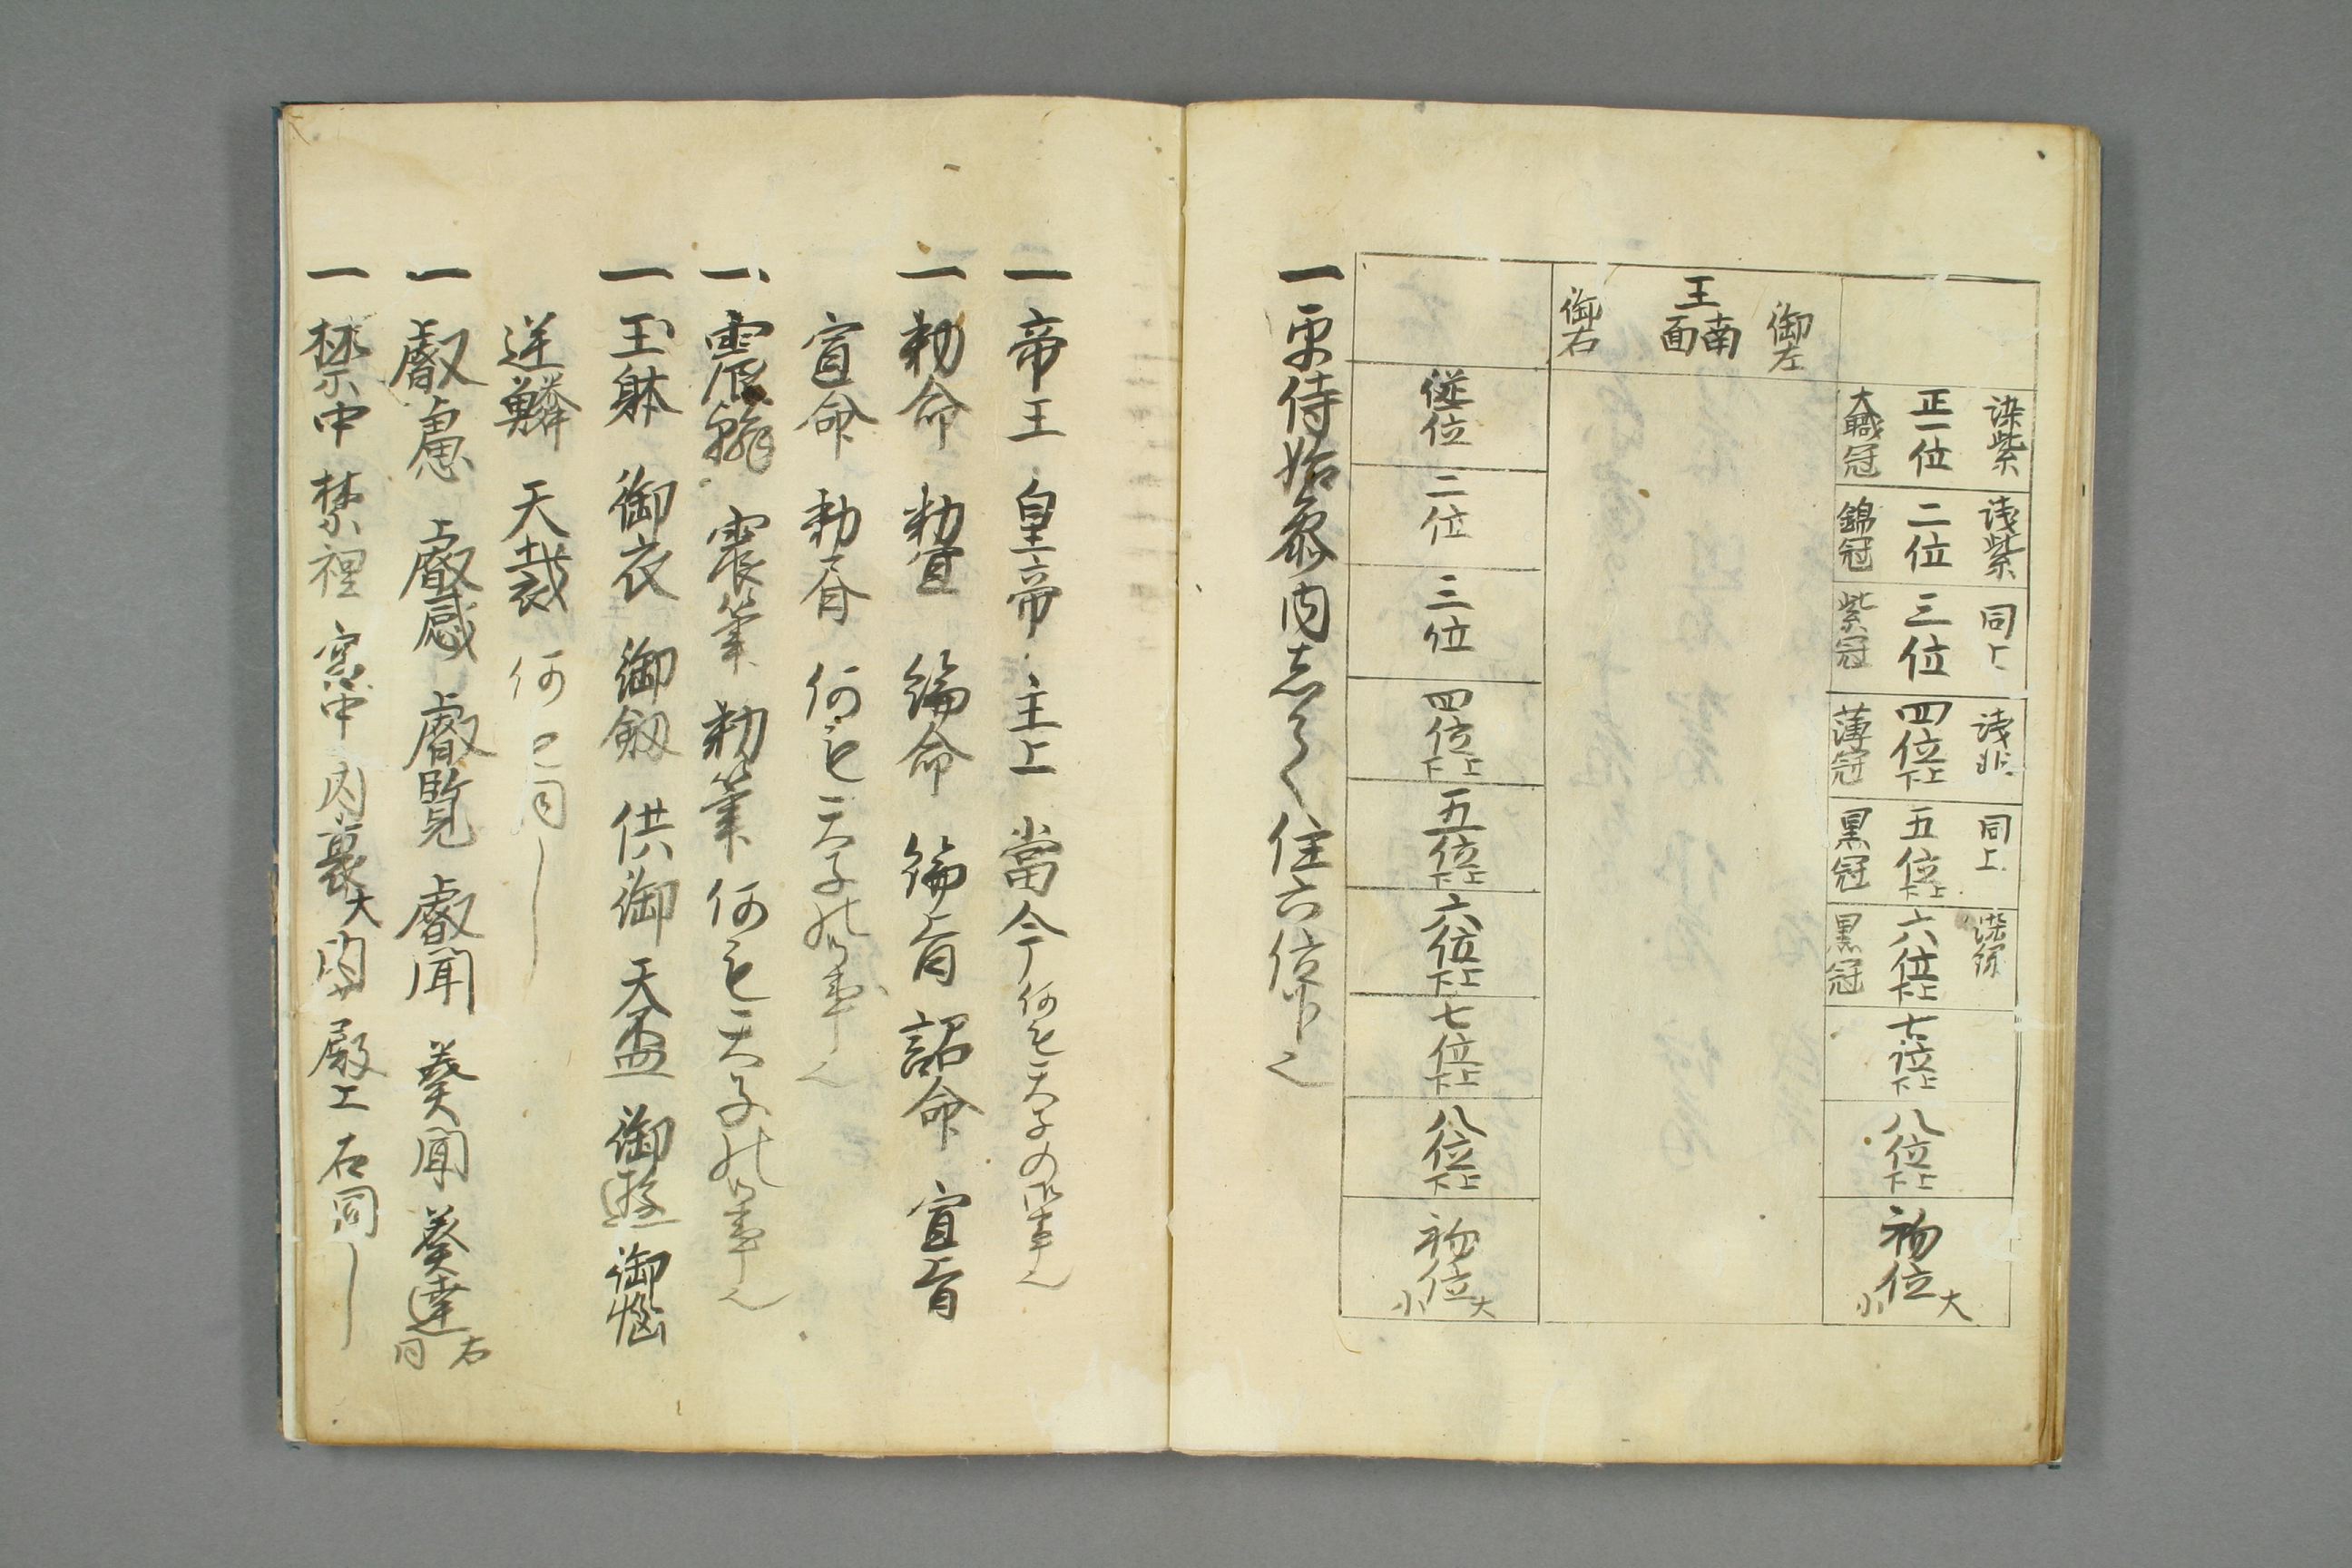 深紫
正一位
大職冠
浅紫
二位
錦冠
同上
三位
紫冠
浅緋
四位上下
薄冠
同上
五位上下
黒冠
深緑
六位上下
黒冠
七位上下
八位上下
初位大小
御左
王
南面
御右
従一位
二位
三位
四位上下
五位上下
六位上下
七位上下
八位上下
初位大小
一平侍始參内志てハ任六位下也
一帝王 皇帝 主上 當今何も天子の御事也
一勅命 勅宣 綸命 綸旨 詔命 宣旨
宣命 勅旨 何も天子の御事也
一宸翰 宸筆 勅筆 何も天子の御事也
一玉躰 御衣 御劔 供御 天盃 御遊 御悩
逆鱗 天裁 何も同し
一叡慮 叡感 叡覧 叡聞 奏聞 奏達右同
一禁中 禁裡 宮中 内裏 大内 殿上 右同し